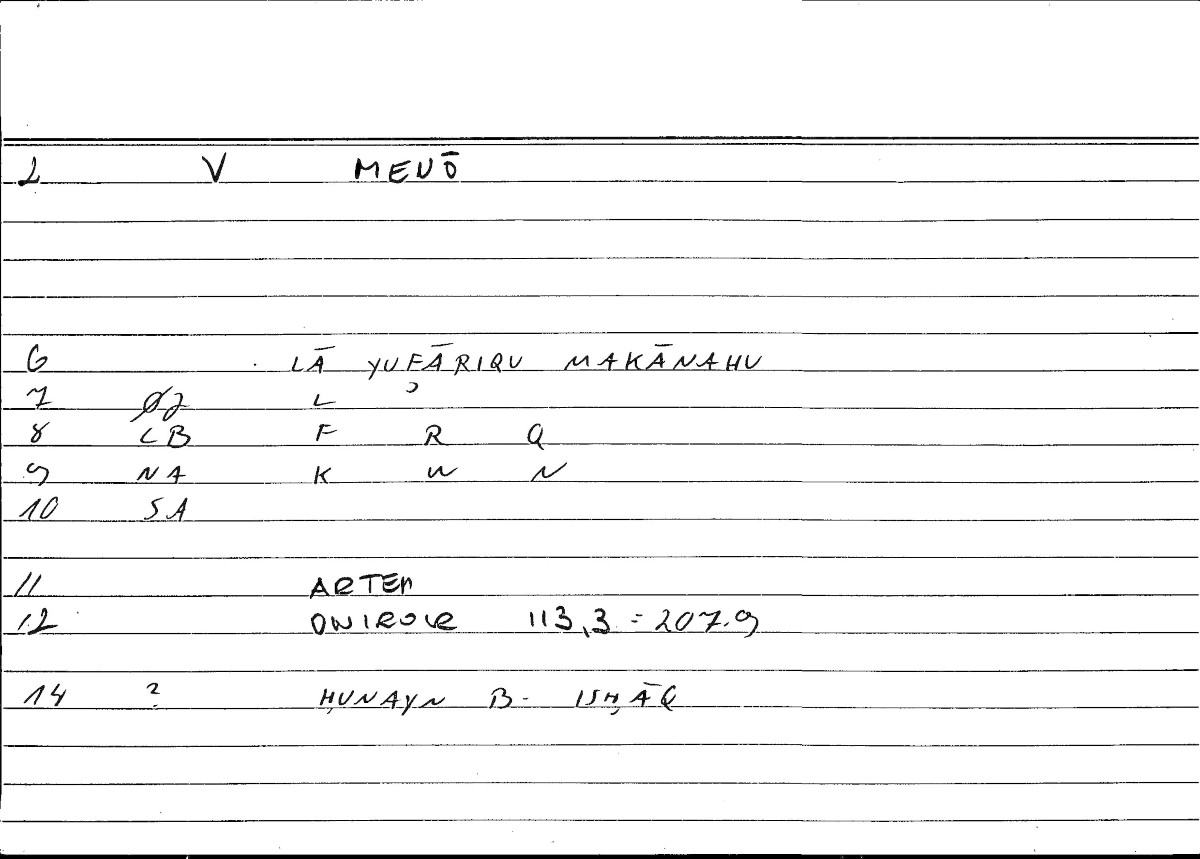 2 V MENŌ
6 LĀ YUFĀRIQU MAKĀNAHU
7 ØJ L ʾ
8 LB F R Q
9 NA K W N
10 SA
11 ARTEM
12 ONIROCR 113,3 = 207.9
14 ? ḤUNAYN B. ISḤĀQ